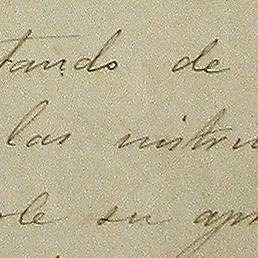 tando de
las instru
ole su apr